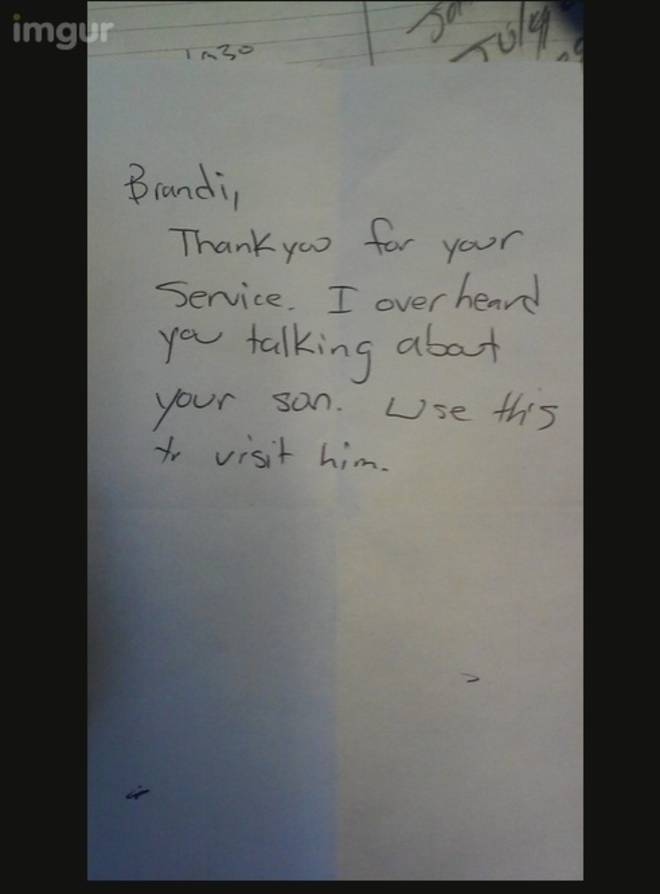 imgur
July
Brandi,
Thank you for your
Service. I overheard
you talking about
your son. Use this
to visit him.